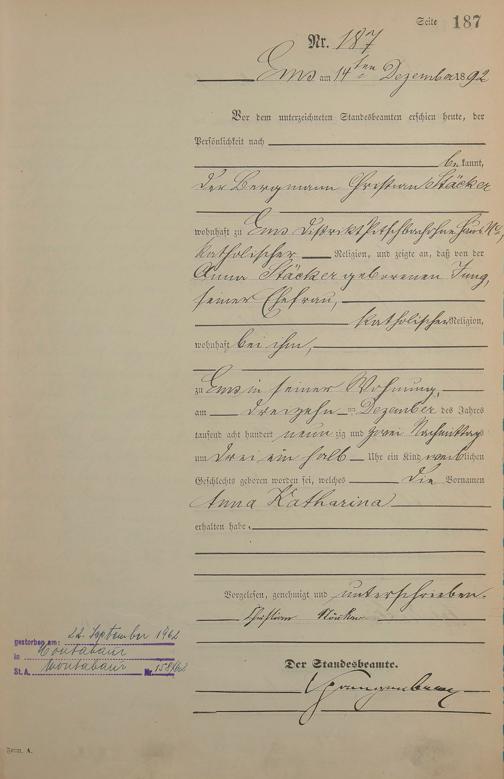 Seite 187
Nr. 187
Ems am 14ten Dezember 1892
Vor dem unterzeichneten Standesbeamten erschien heute, der
Persönlichkeit nach
bekannt,
der Bergmann Christian Stäcker
wohnhaft zu Ems Distrikt Pitschbach ohne Haus No,
katholischer Religion, und zeigte an, daß von der
Anna Stäcker geborenen Jung,
seiner Ehefrau,
katholischer Religion,
wohnhaft bei ihm,
zu Ems in seiner Wohnung,
am dreizehnten Dezember des Jahres
tausend acht hundert neunzig und zwei Nachmittags
um drei ein halb Uhr ein Kind weiblichen
Geschlechts geboren worden sei, welches die Vornamen
Anna Katharina
erhalten habe.
Vorgelesen, genehmigt und unterschrieben.
Christian Stäcker
Der Standesbeamte.
gestorben am: 22. September 1962
in Montabaur
St. A. Montabaur Nr.
Form. A.